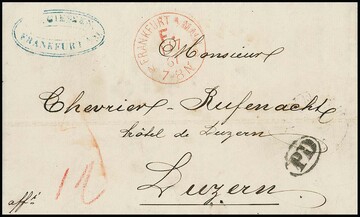 FRANKFURT A.M.
FRANKFURT A MAIN
67
7-8 N
Monsieur
Chevrier-Rufenacht
hôtel de Luzern
PD
Luzern.
affr
12